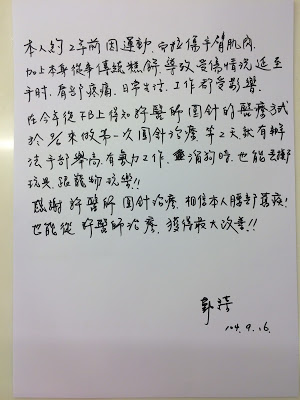 本人約2年前因運動,拉傷手臂肌肉,
加上本身從事傳統糕餅,導致受傷情況延至
平時,肩部疼痛,日常生活,工作都受影響.
在今年從FB上得知許醫師圓針的醫療方式
於9/6來做第一次圓針治療,第2天就有辦
法手部舉高,有氣力工作,遛狗時,也能丟
玩具,跟寵物玩樂!!
感謝許醫師圓針治療,相信本人腰部舊疾,
也能從許醫師治療,獲得最大改善!!
104.9.16.